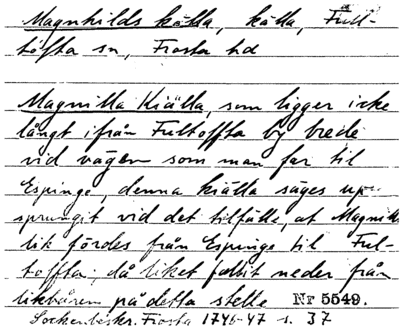 Magnhilds källa, källa, Full-
töfta sn, Frosta hd
Magnilla Kiälla, som ligger icke
långt ifrån Fultoffta by brede
vid vägen som man far til
Espinge, denna kiälla säges up-
sprungit vid det tilfälle, at Magnill
lik fördes från Espinge til Ful-
toffta, då liket fallit neder från
likbåren på detta stelle Nr 5549.
Sockenbeskr. Frosta 1746-47 s. 37